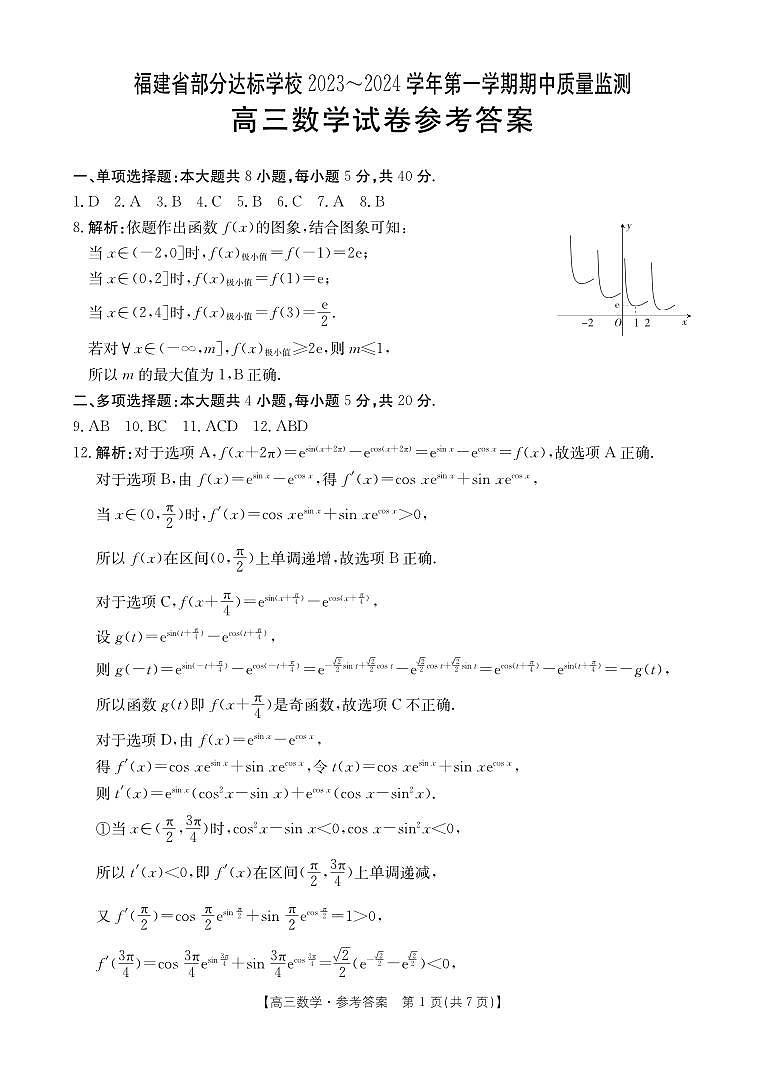 福建省部分达标学校 2023～2024 学年第一学期期中质量监测
高三数学试卷参考答案
一、单项选择题:本大题共 8 小题,每小题 5 分,共 40 分.
1. D 2. A 3. B 4. C 5. B 6. C 7. A 8. B
8. 解析:依题作出函数 f(x)的图象,结合图象可知:
当 x∈(−2,0]时,f(x)极小值=f(−1)=2e;
当 x∈(0,2]时,f(x)极小值=f(1)=e;
当 x∈(2,4]时,f(x)极小值=f(3)=e/2.
若对∀x∈(−∞,m],f(x)极小值≥2e,则 m≤1,
所以 m 的最大值为 1,B 正确.
y
e
−2 O 1 2 x
二、多项选择题:本大题共 4 小题,每小题 5 分,共 20 分.
9. AB 10. BC 11. ACD 12. ABD
12. 解析:对于选项 A,f(x+2π)=e^{sin(x+2π)}−e^{cos(x+2π)}=e^{sin x}−e^{cos x}=f(x),故选项 A 正确.
对于选项 B,由 f(x)=e^{sin x}−e^{cos x},得 f′(x)=cos xe^{sin x}+sin xe^{cos x},
当 x∈(0,π/2)时,f′(x)=cos xe^{sin x}+sin xe^{cos x}>0,
所以 f(x)在区间(0,π/2)上单调递增,故选项 B 正确.
对于选项 C,f(x+π/4)=e^{sin(x+π/4)}−e^{cos(x+π/4)},
设 g(t)=e^{sin(t+π/4)}−e^{cos(t+π/4)},
则 g(−t)=e^{sin(−t+π/4)}−e^{cos(−t+π/4)}=e^{−√2/2 sin t+√2/2 cos t}−e^{√2/2 cos t+√2/2 sin t}=e^{cos(t+π/4)}−e^{sin(t+π/4)}=−g(t),
所以函数 g(t)即 f(x+π/4)是奇函数,故选项 C 不正确.
对于选项 D,由 f(x)=e^{sin x}−e^{cos x},
得 f′(x)=cos xe^{sin x}+sin xe^{cos x},令 t(x)=cos xe^{sin x}+sin xe^{cos x},
则 t′(x)=e^{sin x}(cos²x−sin x)+e^{cos x}(cos x−sin²x).
①当 x∈(π/2,3π/4)时,cos²x−sin x<0,cos x−sin²x<0,
所以 t′(x)<0,即 f′(x)在区间(π/2,3π/4)上单调递减,
又 f′(π/2)=cos π/2 e^{sin π/2}+sin π/2 e^{cos π/2}=1>0,
f′(3π/4)=cos 3π/4 e^{sin 3π/4}+sin 3π/4 e^{cos 3π/4}=√2/2(e^{−√2/2}−e^{√2/2})<0,
【高三数学·参考答案 第 1 页(共 7 页)】